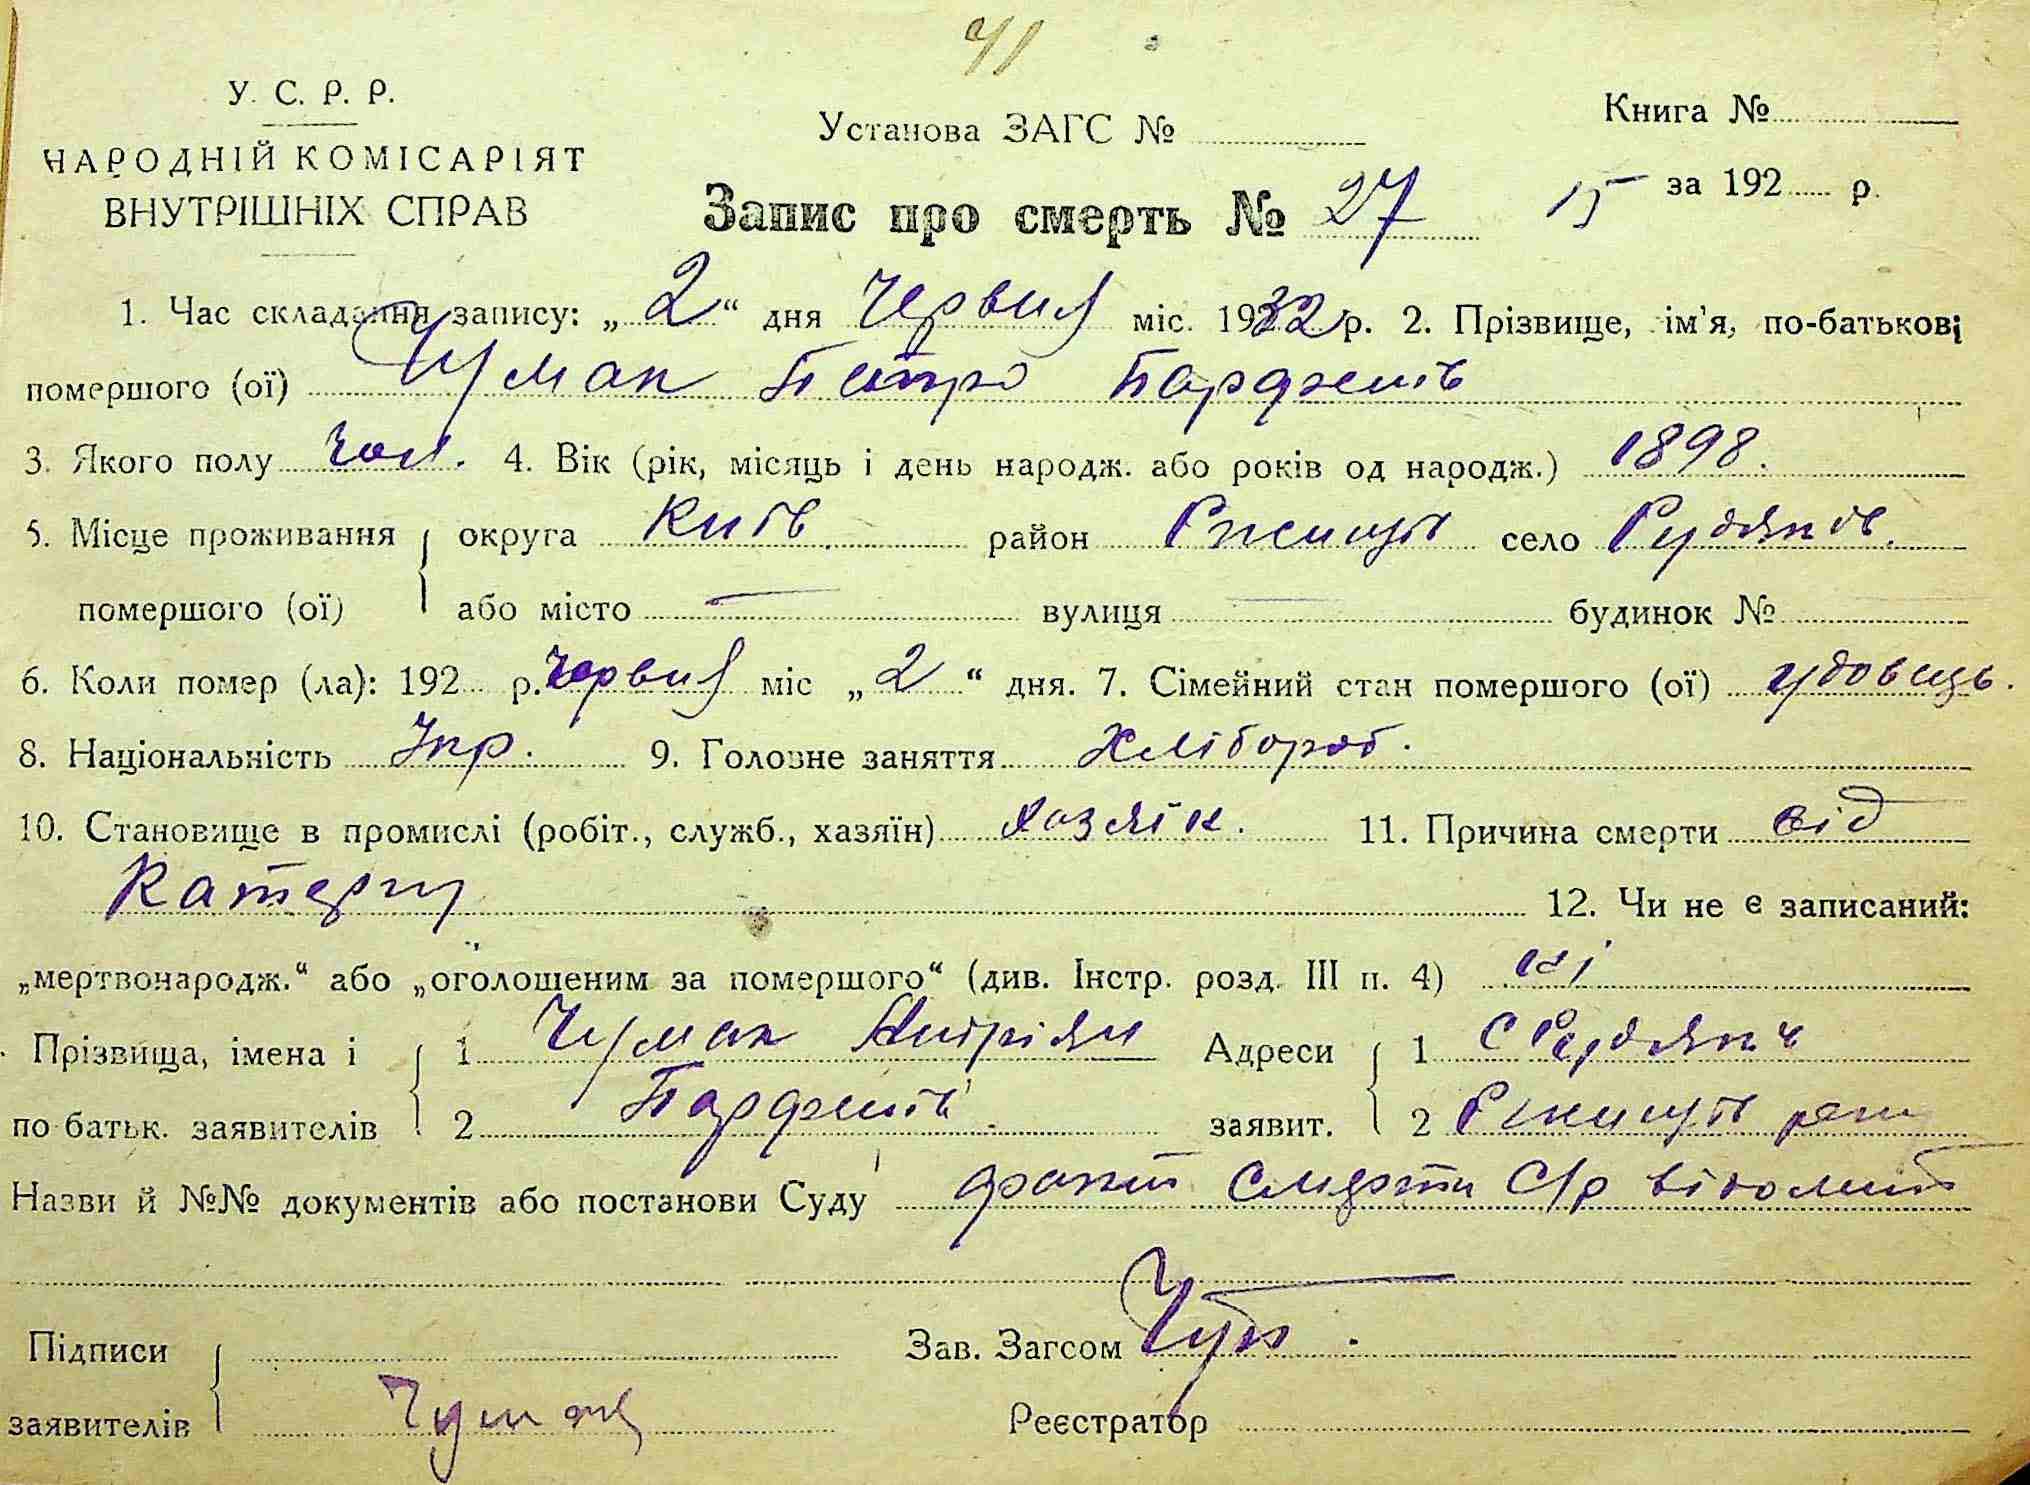 41
У. С. Р. Р.
НАРОДНІЙ КОМІСАРІЯТ
ВНУТРІШНІХ СПРАВ
Установа ЗАГС №
Книга №
Запис про смерть № 27 15 за 192 р.
1. Час складання запису: „ 2 “ дня Червня міс. 1932 р. 2. Прізвище, ім'я, по-батькові
помершого (ої) Чумак Петро Парфенів
3. Якого полу чол. 4. Вік (рік, місяць і день народж. або років од народж.) 1898.
5. Місце проживання округа Київ. район Ржищів село Рудяків.
помершого (ої) або місто — вулиця — будинок №
6. Коли помер (ла): 192 р. Червня міс „ 2 “ дня. 7. Сімейний стан помершого (ої) удовець.
8. Національність Укр. 9. Головне заняття Хлібороб.
10. Становище в промислі (робіт., служб., хазяїн) Хозяїн. 11. Причина смерти від
Катару
12. Чи не є записаний:
„мертвонародж.“ або „оголошеним за помершого“ (див. Інстр. розд. III п. 4) ні
Прізвища, імена і 1 Чумак Андріян Адреси 1 с Рудяки
по батьк. заявителів 2 Парфенів заявит. 2 Ржищів
Назви й №№ документів або постанови Суду факт смерти С/р відомий
Підписи
Зав. Загсом
заявителів Чумак
Реєстратор